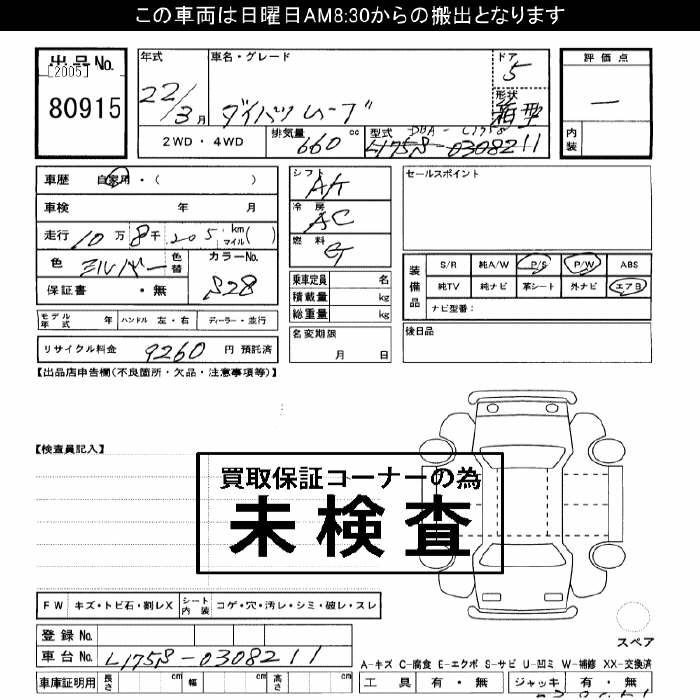 この車両は日曜日AM8:30からの搬出となります
出品No.
[2005]
80915
年式
22/3月
車名・グレード
ダイハツムーブ
ドア
5
形状
箱型
評価点
—
内装
2WD・4WD
排気量
660 cc
型式
DBA-L175S
L175S-0308211
車歴 自家用・( )
車検 年 月
走行 10万8千205 km マイル( )
色 シルバー
色替
カラーNo.
S28
保証書 ・無
シフト
AT
冷房
AC
燃料
G
乗車定員 名
積載量 kg
総重量 kg
名変期限
月 日
セールスポイント
装備品
S/R 純A/W P/S P/W ABS
純TV 純ナビ 革シート 外ナビ エアB
ナビ型番:
後日品
モデル年式 年 ハンドル 左・右 ディーラー・並行
リサイクル料金 9260 円 預託済
【出品店申告欄(不良箇所・欠品・注意事項等)】
【検査員記入】
買取保証コーナーの為
未検査
FW キズ・トビ石・割レX シート内装 コゲ・穴・汚レ・シミ・破レ・スレ
登録No.
車台No. L175S-0308211
車庫証明用 長さ cm 幅 cm 高さ cm
スペア
A-キズ C-腐食 E-エクボ S-サビ U-凹ミ W-補修 XX-交換済
工具 有・無 ジャッキ 有・無